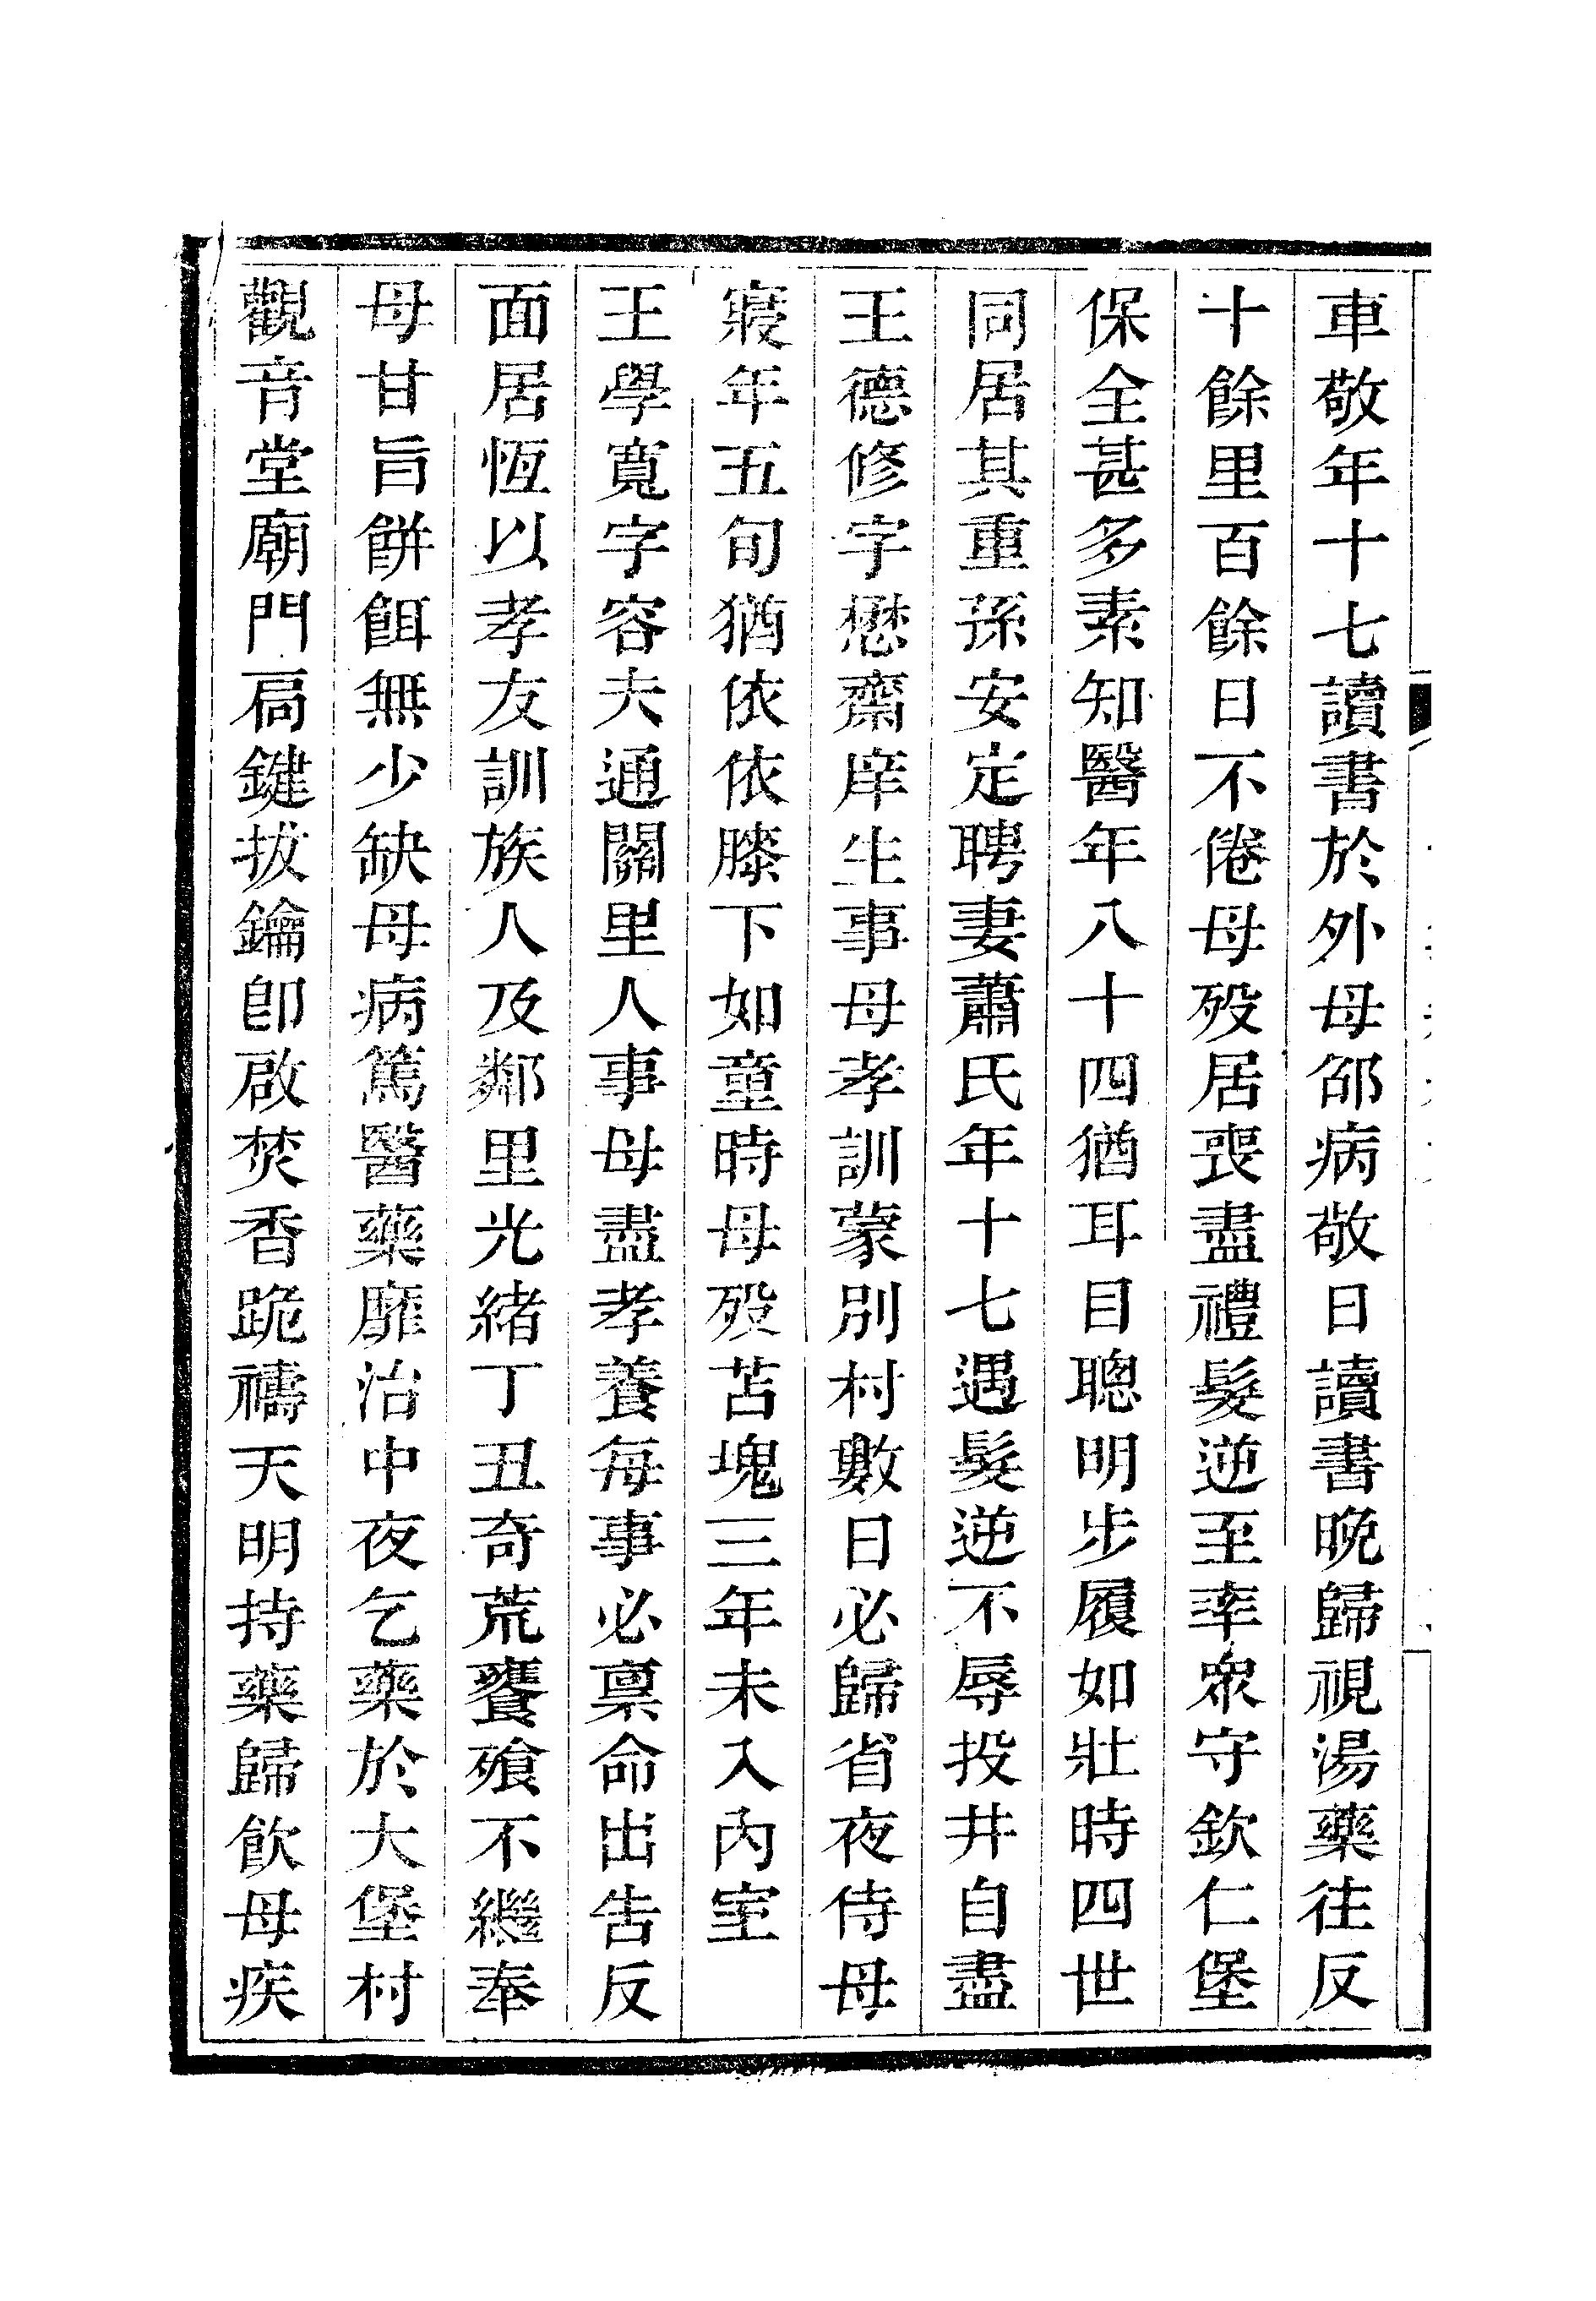 車敬年十七讀書於外母邵病敬日讀書晚歸視湯藥往反
十餘里百餘日不倦母歿居喪盡禮髮逆至率眾守欽仁堡
保全甚多素知醫年八十四猶耳目聰明步履如壯時四世
同居其重孫安定聘妻蕭氏年十七遇髮逆不辱投井自盡
王德修字懋齋庠生事母孝訓蒙別村數日必歸省夜侍母
寢年五旬猶依依膝下如童時母歿苫塊三年未入內室
王學寬字容夫通關里人事母盡孝養每事必稟命出告反
面居恆以孝友訓族人及鄰里光緒丁丑奇荒饔飧不繼奉
母甘旨餅餌無少缺母病篤醫藥靡治中夜乞藥於大堡村
觀音堂廟門扃鍵拔鑰卽啟焚香跪禱天明持藥歸飮母疾